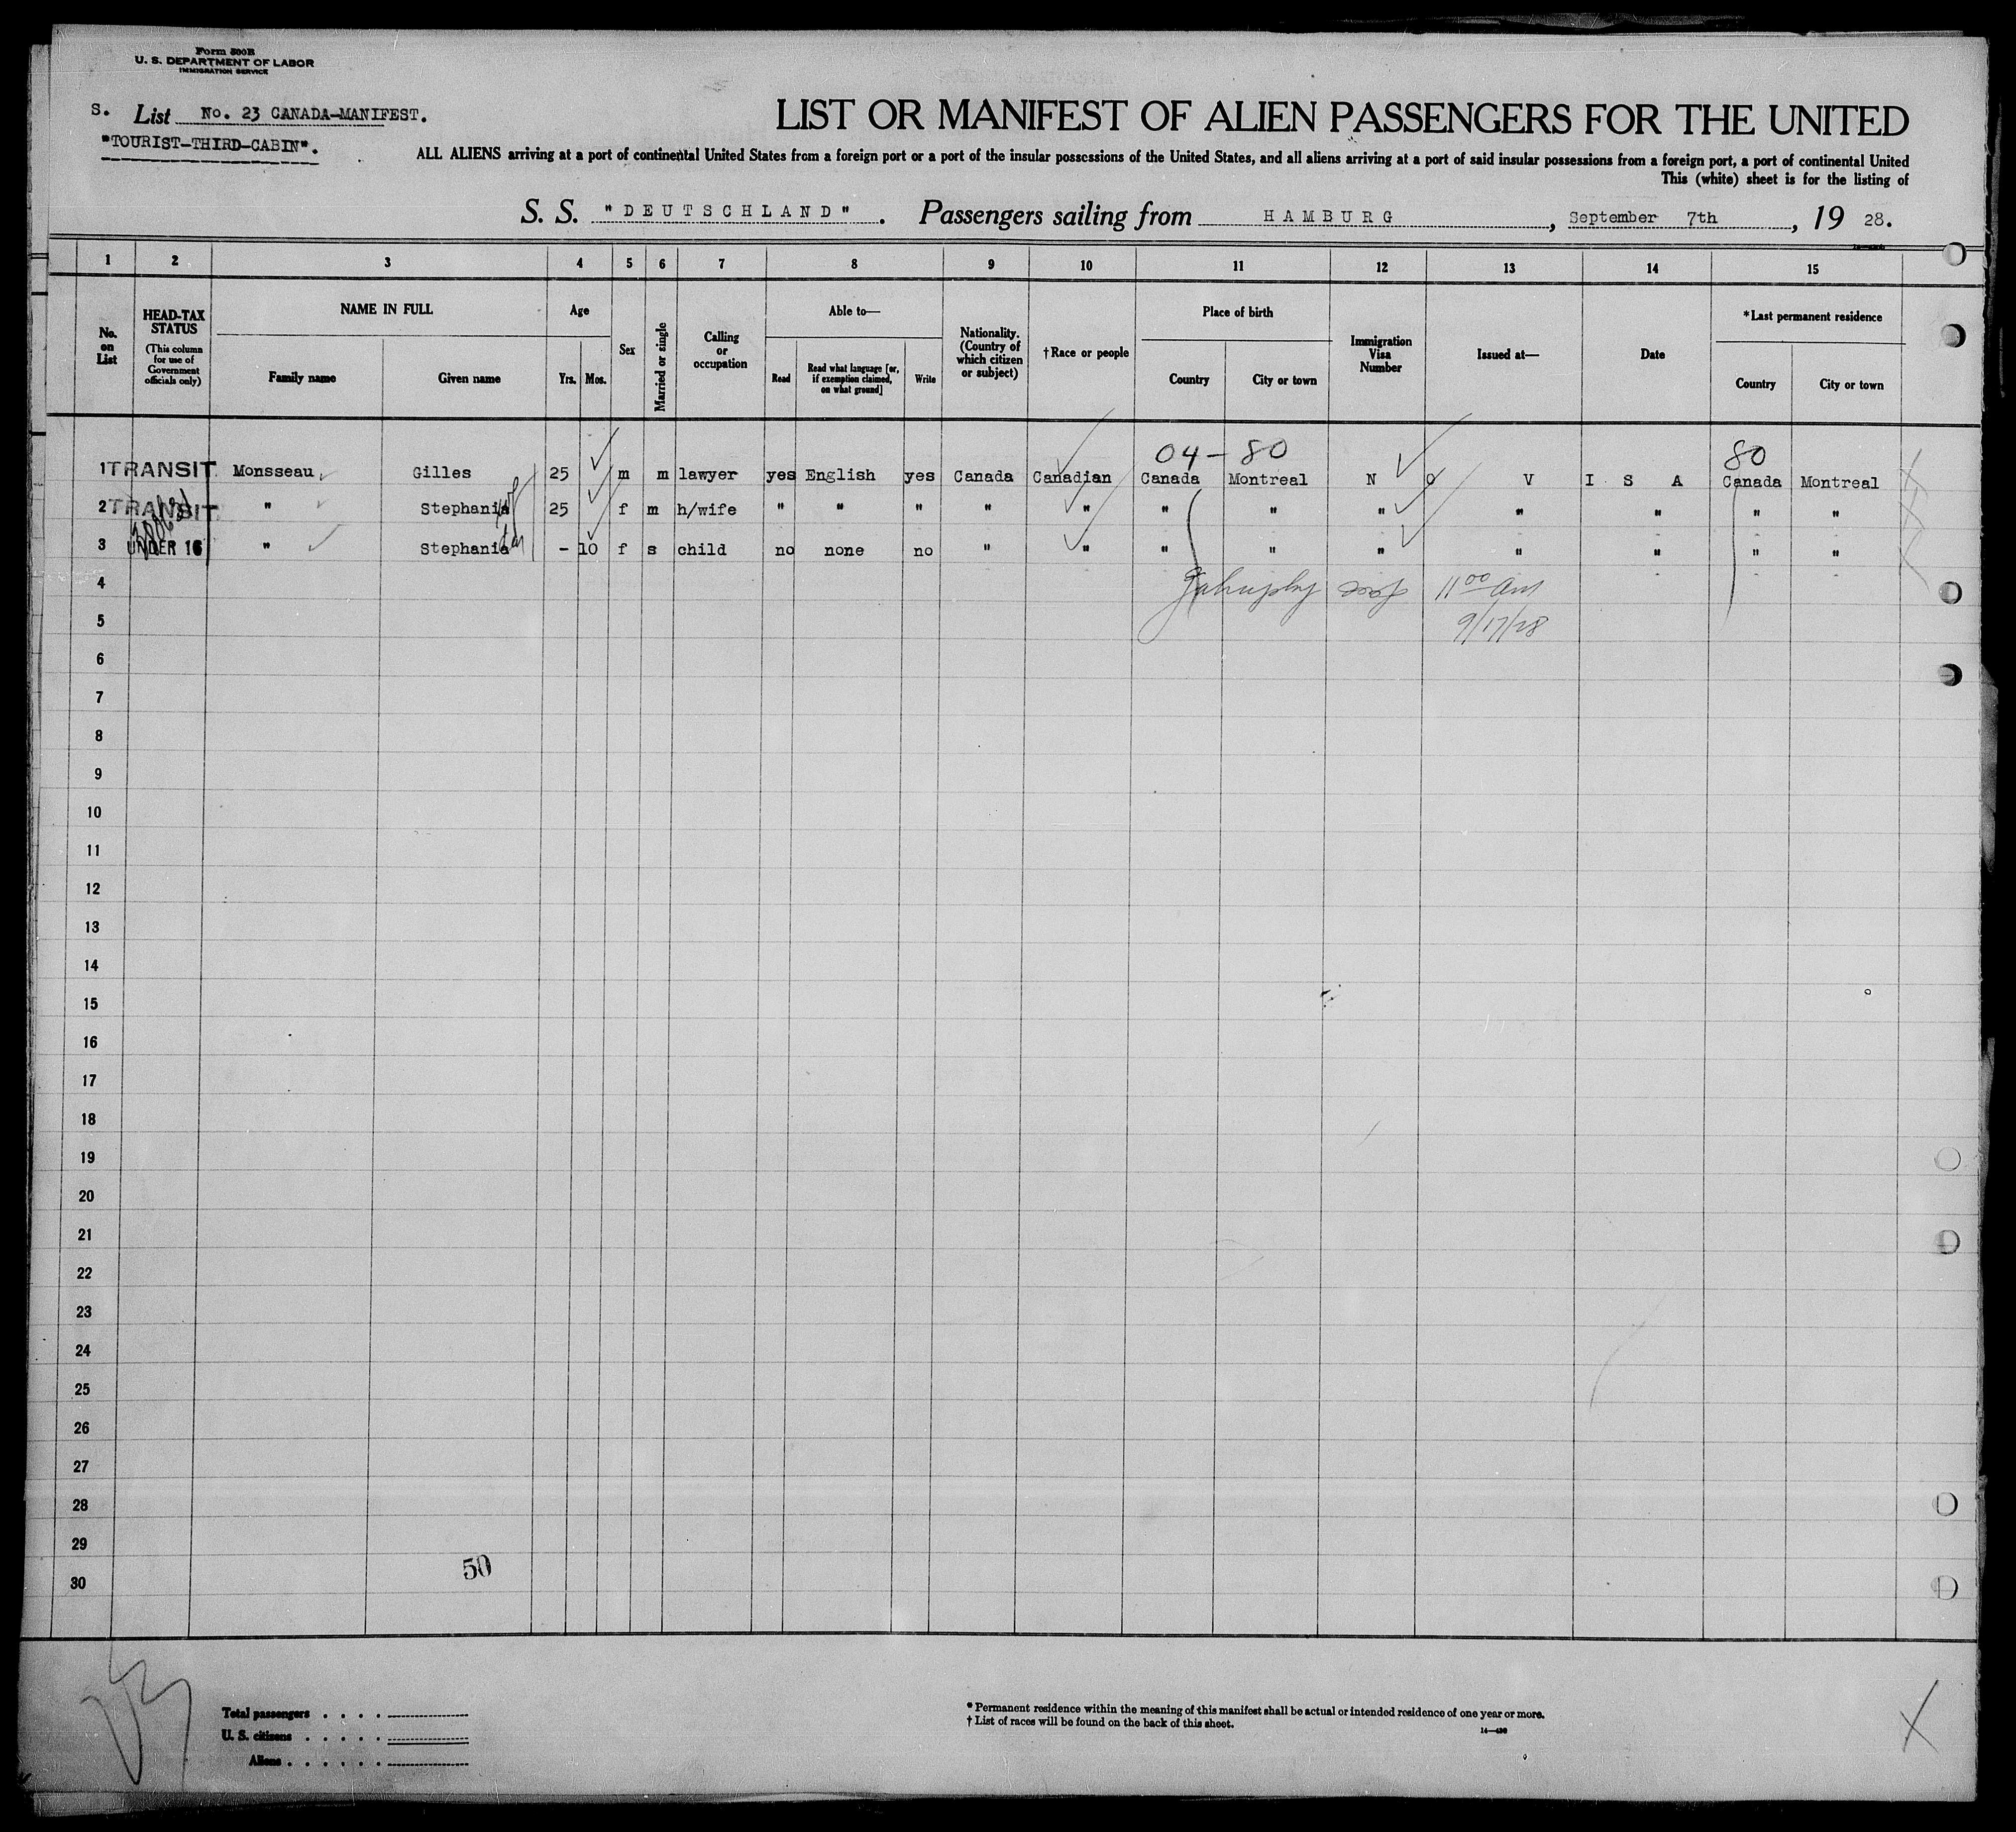 Form 500B
U. S. DEPARTMENT OF LABOR
IMMIGRATION SERVICE
S. List No. 23 CANADA-MANIFEST.
"TOURIST-THIRD-CABIN".
LIST OR MANIFEST OF ALIEN PASSENGERS FOR THE UNITED
ALL ALIENS arriving at a port of continental United States from a foreign port or a port of the insular possessions of the United States, and all aliens arriving at a port of said insular possessions from a foreign port, a port of continental United
This (white) sheet is for the listing of
S. S. "DEUTSCHLAND". Passengers sailing from HAMBURG, September 7th, 19 28.
1 2 3 4 5 6 7 8 9 10 11 12 13 14 15
No. on List
HEAD-TAX STATUS
(This column for use of Government officials only)
NAME IN FULL
Family name Given name
Age
Yrs. Mos.
Sex
Married or single
Calling or occupation
Able to—
Read
Read what language [or, if exemption claimed, on what ground]
Write
Nationality. (Country of which citizen or subject)
†Race or people
Place of birth
Country City or town
Immigration Visa Number
Issued at—
Date
*Last permanent residence
Country City or town
04-80 80
1 TRANSIT Monsseau Gilles 25 m m lawyer yes English yes Canada Canadian Canada Montreal N O V I S A Canada Montreal
2 TRANSIT " Stephania wf 25 f m h/wife " " " " " " " " " " " "
3 UNDER 16 " Stephania - 10 f s child no none no " " " " " " " " "
4 11 00 am
5 9/17/28
6
7
8
9
10
11
12
13
14
15
16
17
18
19
20
21
22
23
24
25
26
27
28
29
30
50
Total passengers . . . .
U. S. citizens . . . . .
Aliens . . . . . .
* Permanent residence within the meaning of this manifest shall be actual or intended residence of one year or more.
† List of races will be found on the back of this sheet.
X